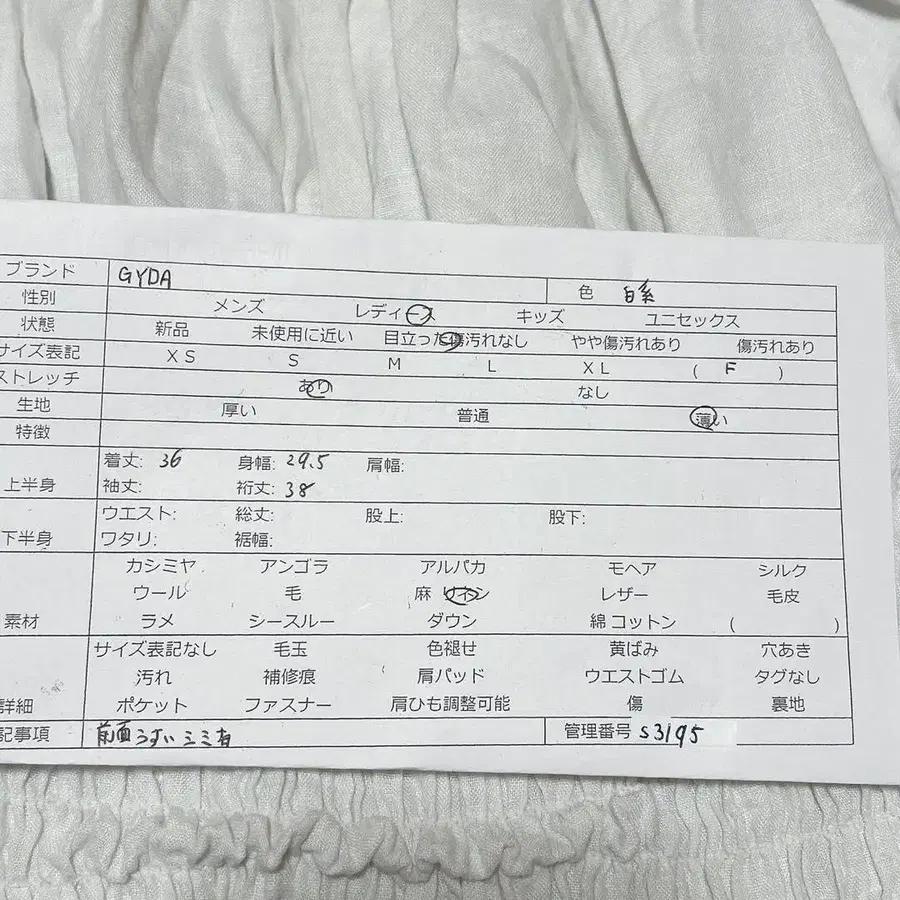 ブランド GYDA 色 白系
性別 メンズ レディース キッズ ユニセックス
状態 新品 未使用に近い 目立った傷汚れなし やや傷汚れあり 傷汚れあり
サイズ表記 XS S M L XL ( F )
ストレッチ あり なし
生地 厚い 普通 薄い
特徴
上半身 着丈: 36 身幅: 29.5 肩幅:
袖丈: 裄丈: 38
下半身 ウエスト: 総丈: 股上: 股下:
ワタリ: 裾幅:
素材 カシミヤ アンゴラ アルパカ モヘア シルク
ウール 毛 麻 リネン レザー 毛皮
ラメ シースルー ダウン 綿 コットン ( )
詳細 サイズ表記なし 毛玉 色褪せ 黄ばみ 穴あき
汚れ 補修痕 肩パッド ウエストゴム タグなし
ポケット ファスナー 肩ひも調整可能 傷 裏地
記事項 前面うすいシミ有 管理番号 S3195